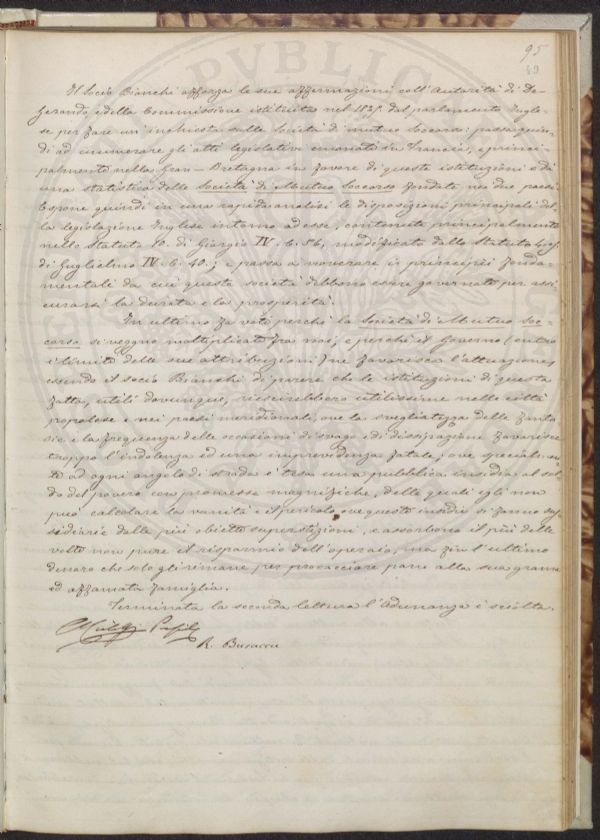 95
49
Il Socio Bianchi afforza le sue affermazioni coll'Autorità di De-
gerando, e della Commissione istituita nel 1825 dal parlamento Ingle-
se per fare un'inchiesta sulle Società di mutuo Soccorso: passa quin-
di ad enumerare gli atti legislativi emanati in Francia, e princi-
palmente nella Gran-Bretagna in favore di queste istituzioni e dà
una statistica delle Società di Mutuo Soccorso fondate nei due paesi.
Espone quindi in una rapida analisi le disposizioni principali del-
la legislazione Inglese intorno ad esse, contenute principalmente
nello Statuto 10. di Giorgio IV. C. 56, modificato dallo Statuto
di Guglielmo IV. C. 40.; e passa a noverare i principii fonda-
mentali da cui queste società debbono essere governate per assi-
curarsi la durata e la prosperità.
In ultimo fa voti perchè la Società di Mutuo Soc-
corso si veggno moltiplicate fra noi, e perchè il Governo (entro
i limiti delle sue attribuzioni) ne favorisca l'attuazione,
essendo il socio Bianchi di parere che le istituzioni di questa
fatta, utili dovunque, riescirebbero utilissime nelle città
popolose e nei paesi meridionali, ove la svegliatezza delle fanta
sie e la frequenza delle occasioni di svago e di dissipazione favorisce
troppo l'indolenza ed una imprevidenza fatale; ove specialmen
te ad ogni angolo di strada è tesa una pubblica insidia al sol-
do del povero con promesse magnifiche, delle quali egli non
può calcolare la vanità e il pericolo; ove queste insidie si fanno sus-
sidiarie dalle più obiette superstizioni, e assorbono il più delle
volte non pure il risparmio dell'operaio, ma fin l'ultimo
denaro che solo gli rimane per procacciare pane alla sua grama
ed affamata famiglia.
Terminata la seconda lettura l'Adunanza è sciolta.
R. Busacca
PVBLIC